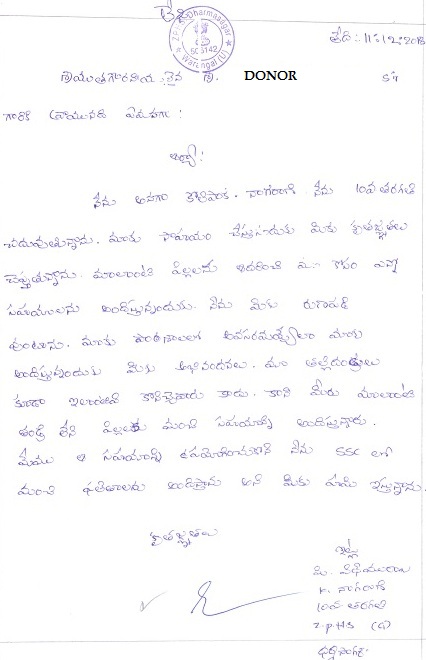 తేది: 11-12-2013
Z.P.S.S Dharmasagar
SC 3142
Warangal (U)
శ్రీయుత గౌరవనీయులైన శ్రీ. DONOR
గారికి వ్రాయునది ఏమనగా :
అయ్యా!
నేను అనగా కొలిపాక. నాగరాణి. నేను 10వ తరగతి
చదువుతున్నాను. మాకు సాహయం చేస్తున్నందుకు మీకు కృతజ్ఞతలు
చెప్తున్నాను. మాలాంటి పిల్లలను ఆదరించి మా కోసం ఎన్నో
సహయాలను అందిస్తున్నందుకు. నేను మీకు రుణపడి
ఉంటాను. మాకు అవసరమయ్యేలా మాకు
అందిస్తున్నందుకు మీకు అభివందనలు. మా తల్లిదండ్రులు
కూడా ఇలాంటివి కొనిచ్చేవారు కాదు. కాని మీరు మాలాంటి
తండ్రి లేని పిల్లలకు మంచి సహయాన్ని అందిస్తున్నారు.
మేము ఆ సహయాన్ని ఉపయోగించుకొని నేను SSC లో
మంచి ఫలితాలను అందిస్తాను అని మీకు హమి ఇస్తున్నాను.
కృతజ్ఞతలు
ఇట్లు
మీ
K. నాగరాణి
10వ తరగతి
Z.P.H.S (G)